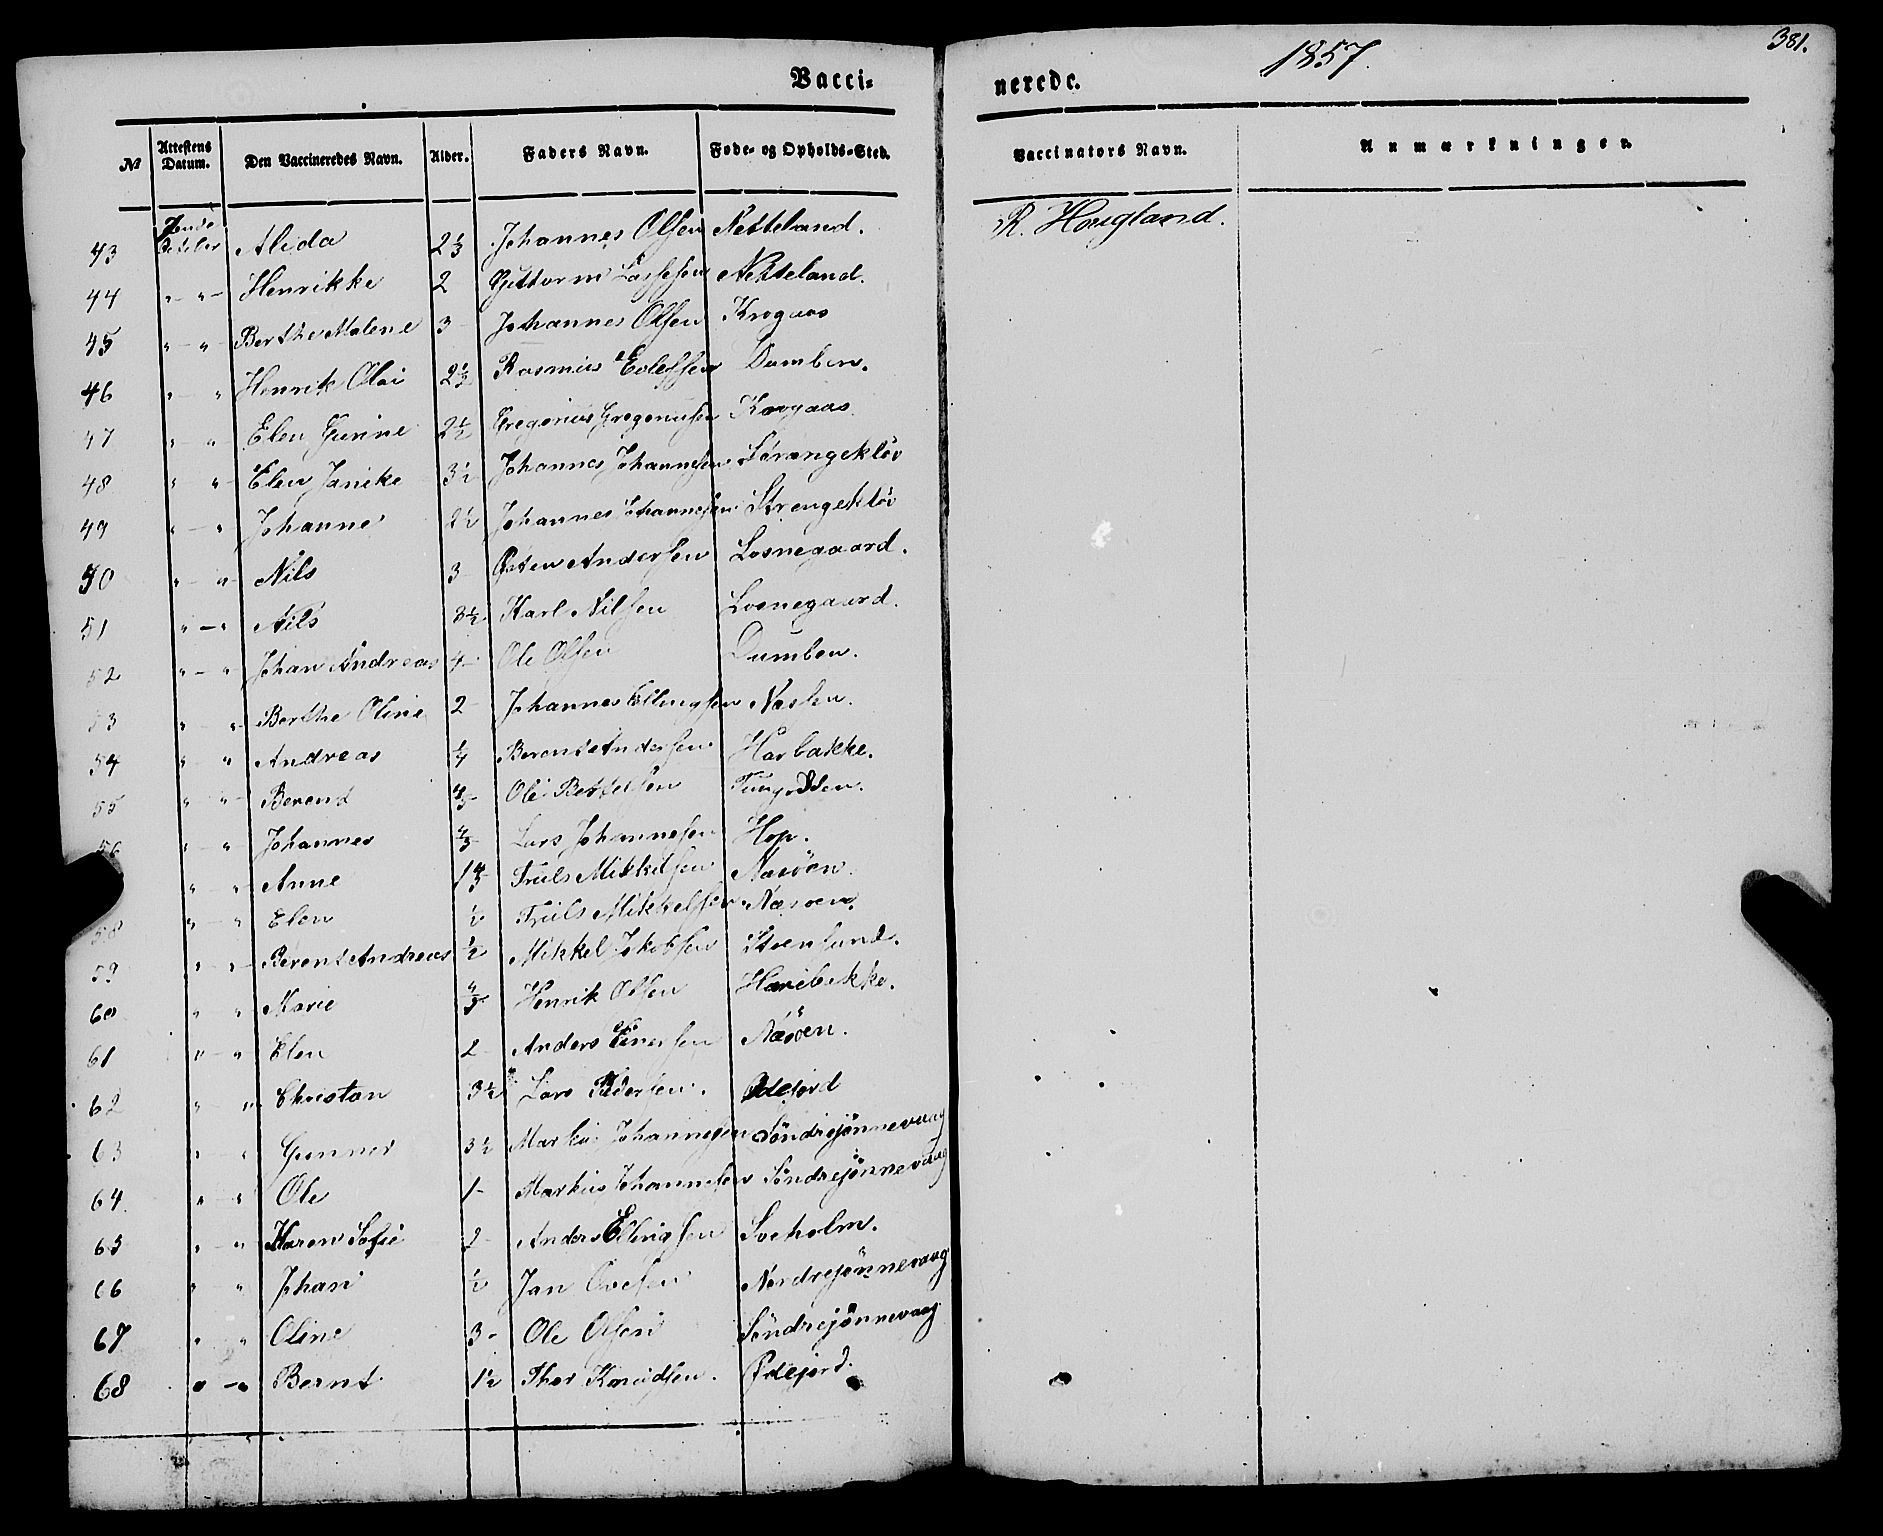 381.
1857.
Vacci- nerede.
No Attestens Datum. Den Vaccineredes Navn. Alder. Faders Navn. Føde- og Opholds-Sted. Vaccinators Navn. Anmærkninger.
43 Alida 2 1/3 Johannes Olsen Netteland. R. Hougland.
44 " - " - Henrikke 2 Guttorm Lassesen Netteland.
45 " " Berthe Malene 3 - Johannes Olsen Krogaas
46 " " Henrik Olai 2 1/3 Rasmus Dumben.
47 " " Elen Gurine 2 1/2 Gregorius Gregoriusen Krogaas
48 " " - Elen Janike 3 1/2 Johannes Johannesen
49 " - " Johanne 2 1/2 Johannes Johannesen
50 " - " - Nils 3 - Østen Andersen Losnegaard.
51 " - " Nils 3 1/2 Karl Nilsen Losnegaard.
52 " - " Johan Andreas 4 - Ole Olsen Dumben.
53 " " - Berthe Oline 2 - Johannes Ellingsen
54 " " Andreas 1/4 Berent Andersen Harbakke.
55 " " - Berent 4/5 Ole Bertelsen
56 " - " Johannes 4/5 Lars Johannesen Hop.
" " - Anne 1 4/5 Truls Mikkelsen Nasöen.
58 " - " Elen 1/2 Truls Mikkelsen Nasöen.
59 " - " - Berent Andreas 1/2 Mikkel Jakobsen Steensund.
60 " " Marie 4/5 Henrik Olsen Haribakke.
61 " - " Elen 2 - Anders Nasöen.
62 " " Christan 3 1/2 Lars Pedersen. Ødejord
63 " " Gunner 3 1/2 Markus Johannesen Söndrejönnevaag
64. " " Ole 1 - Markus Johannesen Söndrejönnevaag
65 " " Karen Sofie 2 - Anders Ellingsen Soeholm.
66 " " Johan 1/2 Jan Ovesen Nordrejönnevaag
67 " " Oline 3 - Ole Olsen Söndrejönnevaag
68 " - " Bernt 1 1/2 Thor Knudsen. Ødejord.